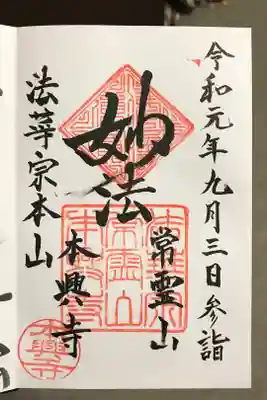 令和元年九月三日参詣
妙法
常霊山
本興寺
法華宗本山
本興寺